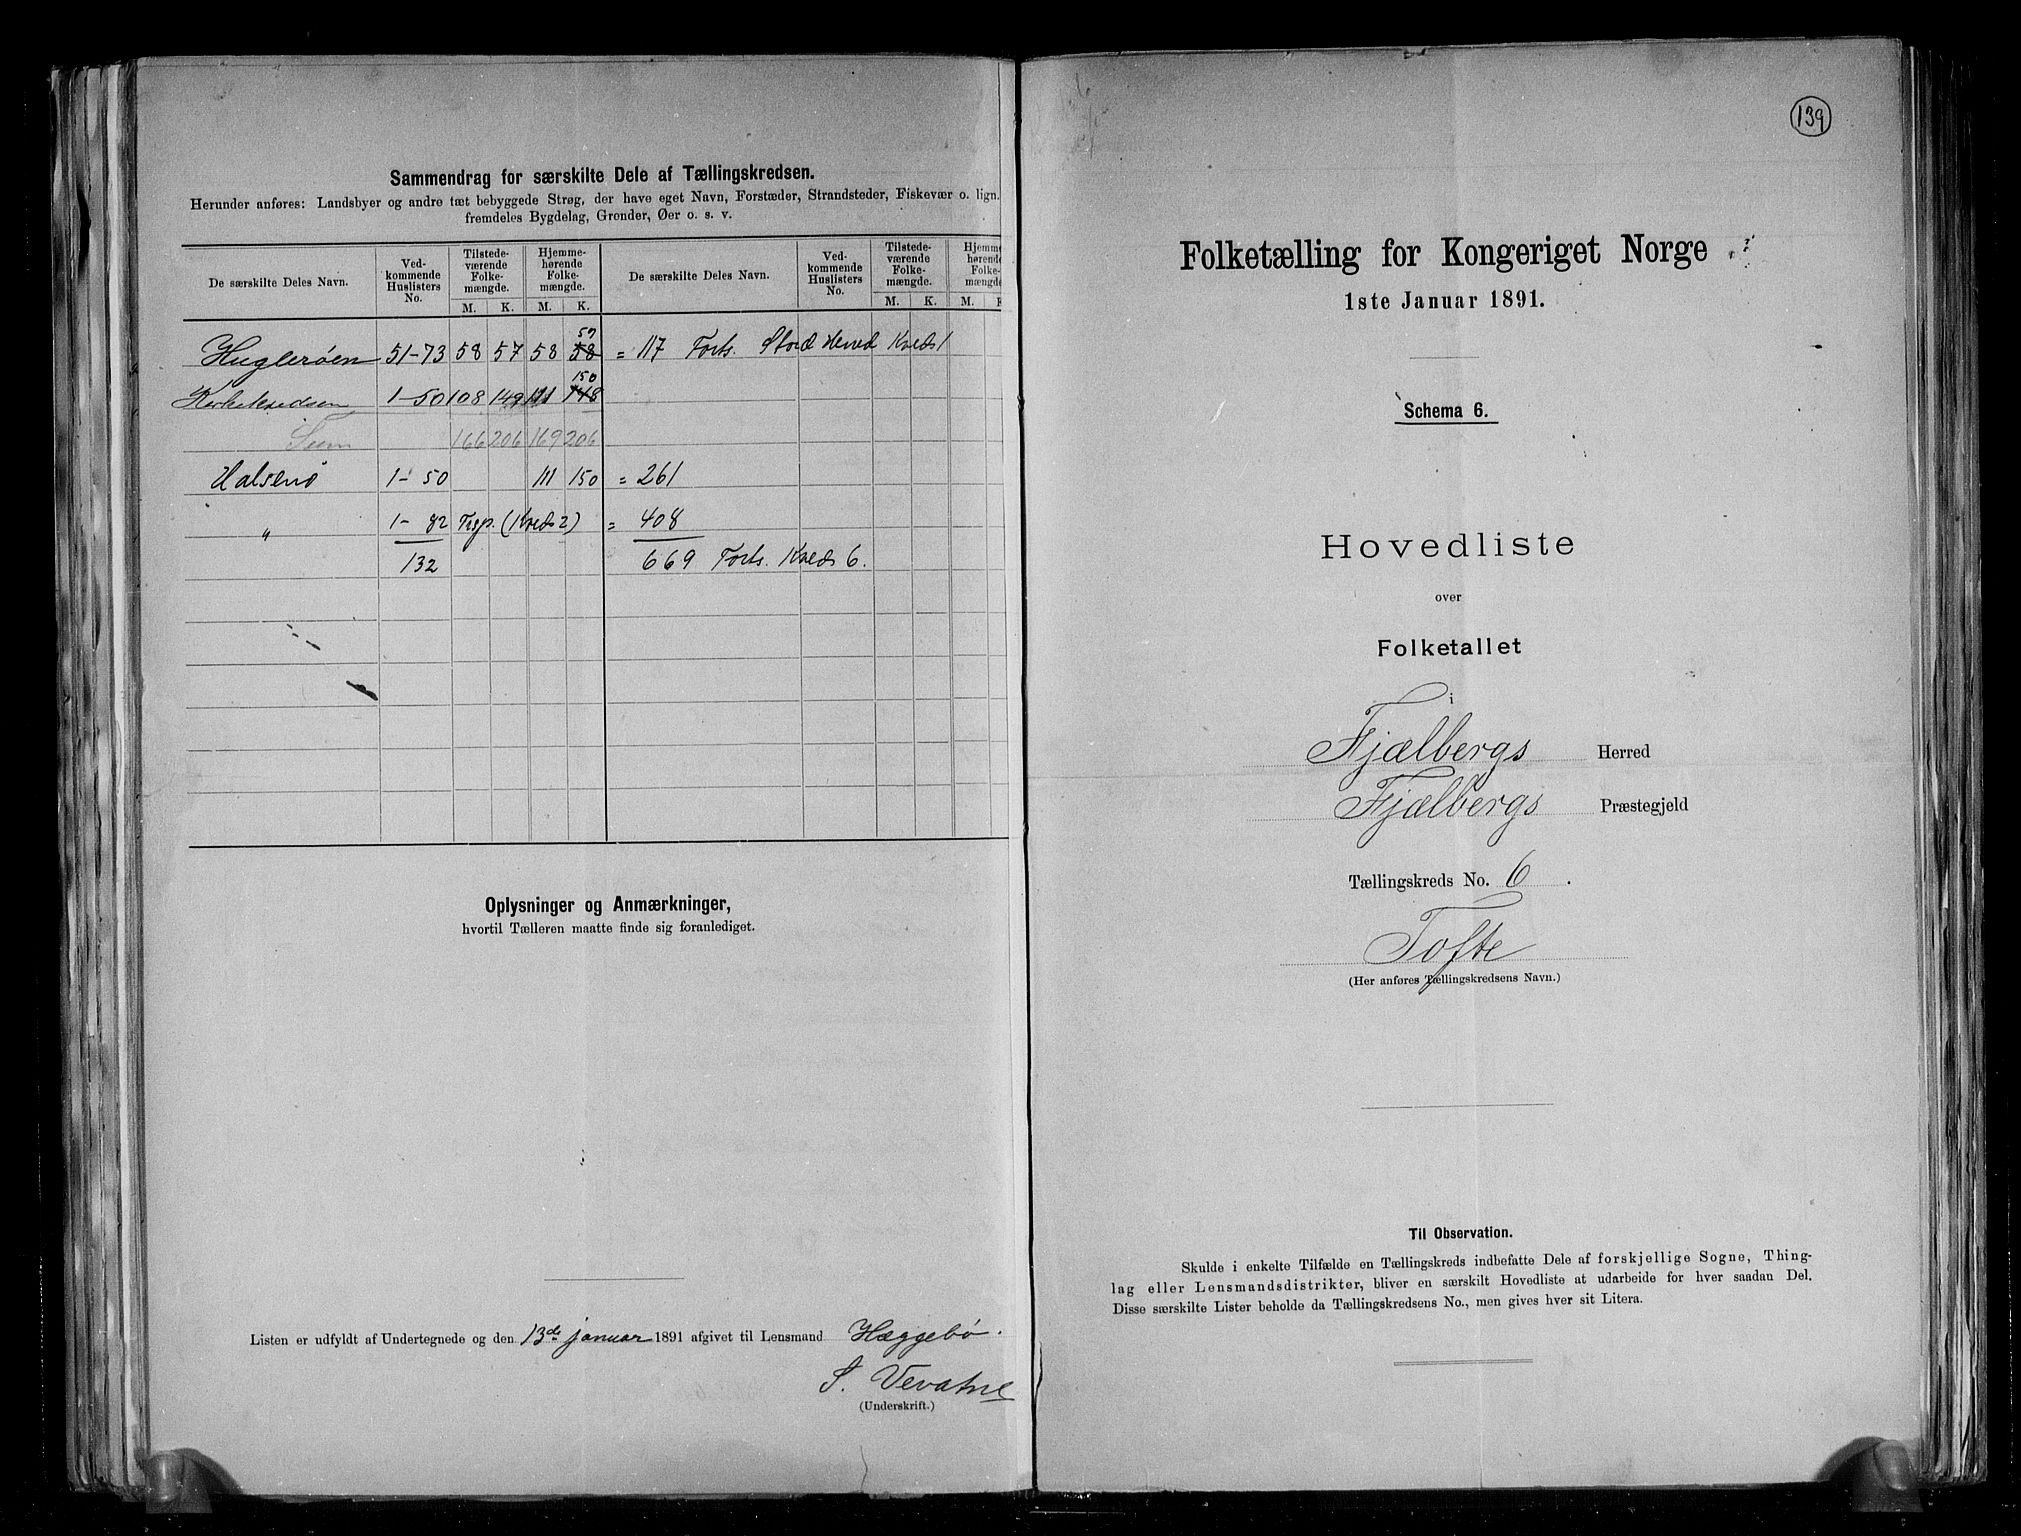 Sammendrag for særskilte Dele af Tællingskredsen.
Herunder anføres: Landsbyer og andre tæt bebyggede Strøg, der have eget Navn, Forstæder, Strandsteder, Fiskevær o. lign.
fremdeles Bygdelag, Grender, Øer o. s. v.
De særskilte Deles Navn. Ved-kommende Huslisters No. Tilstede-værende Folke-mængde. Hjemme-hørende Folke-mængde. De særskilte Deles Navn. Ved-kommende Huslisters No. Tilstede-værende Folke-mængde. Hjemme-hørende Folke-mængde
M. K. M. K. M. K. M. K
57
Huglerøen 51-73 58 57 58 58 = 117 Forts. Stord Herred Kreds 1
150
Kirkekredsen 1-50 108 149 111 148
Sum 166 206 169 206
Halsenø 1-50 111 150 = 261
" 1-82 Tisp. (Kreds 2) = 408
132 669 Forts. Kreds 6.
Oplysninger og Anmærkninger,
hvortil Tælleren maatte finde sig foranlediget.
Listen er udfyldt af Undertegnede og den 13de januar 1891 afgivet til Lensmand Hæggebø.
S. Vevatne
(Underskrift.)
139
Folketælling for Kongeriget Norge
1ste Januar 1891.
Schema 6.
Hovedliste
over
Folketallet
i
Fjælbergs Herred
Fjælbergs Præstegjeld
Tællingskreds No. 6.
Tofte
(Her anføres Tællingskredsens Navn.)
Til Observation.
Skulde i enkelte Tilfælde en Tællingskreds indbefatte Dele af forskjellige Sogne, Thing-
lag eller Lensmandsdistrikter, bliver en særskilt Hovedliste at udarbeide for hver saadan Del.
Disse særskilte Lister beholde da Tællingskredsens No., men gives hver sit Litera.